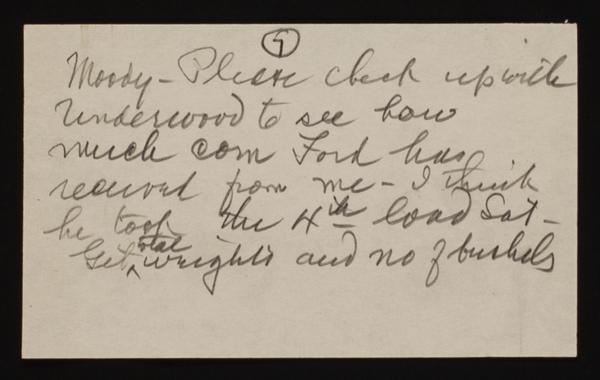 5
Moody - Please check up with
Underwood to see how
much corn Ford has
received from me - I think
he took the 4th load Sat -
Get total weights and no of bushels